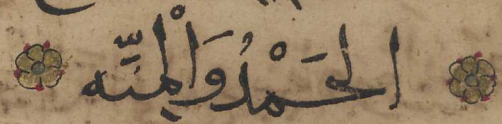 الحَمْدُ وَالْمِنَّه